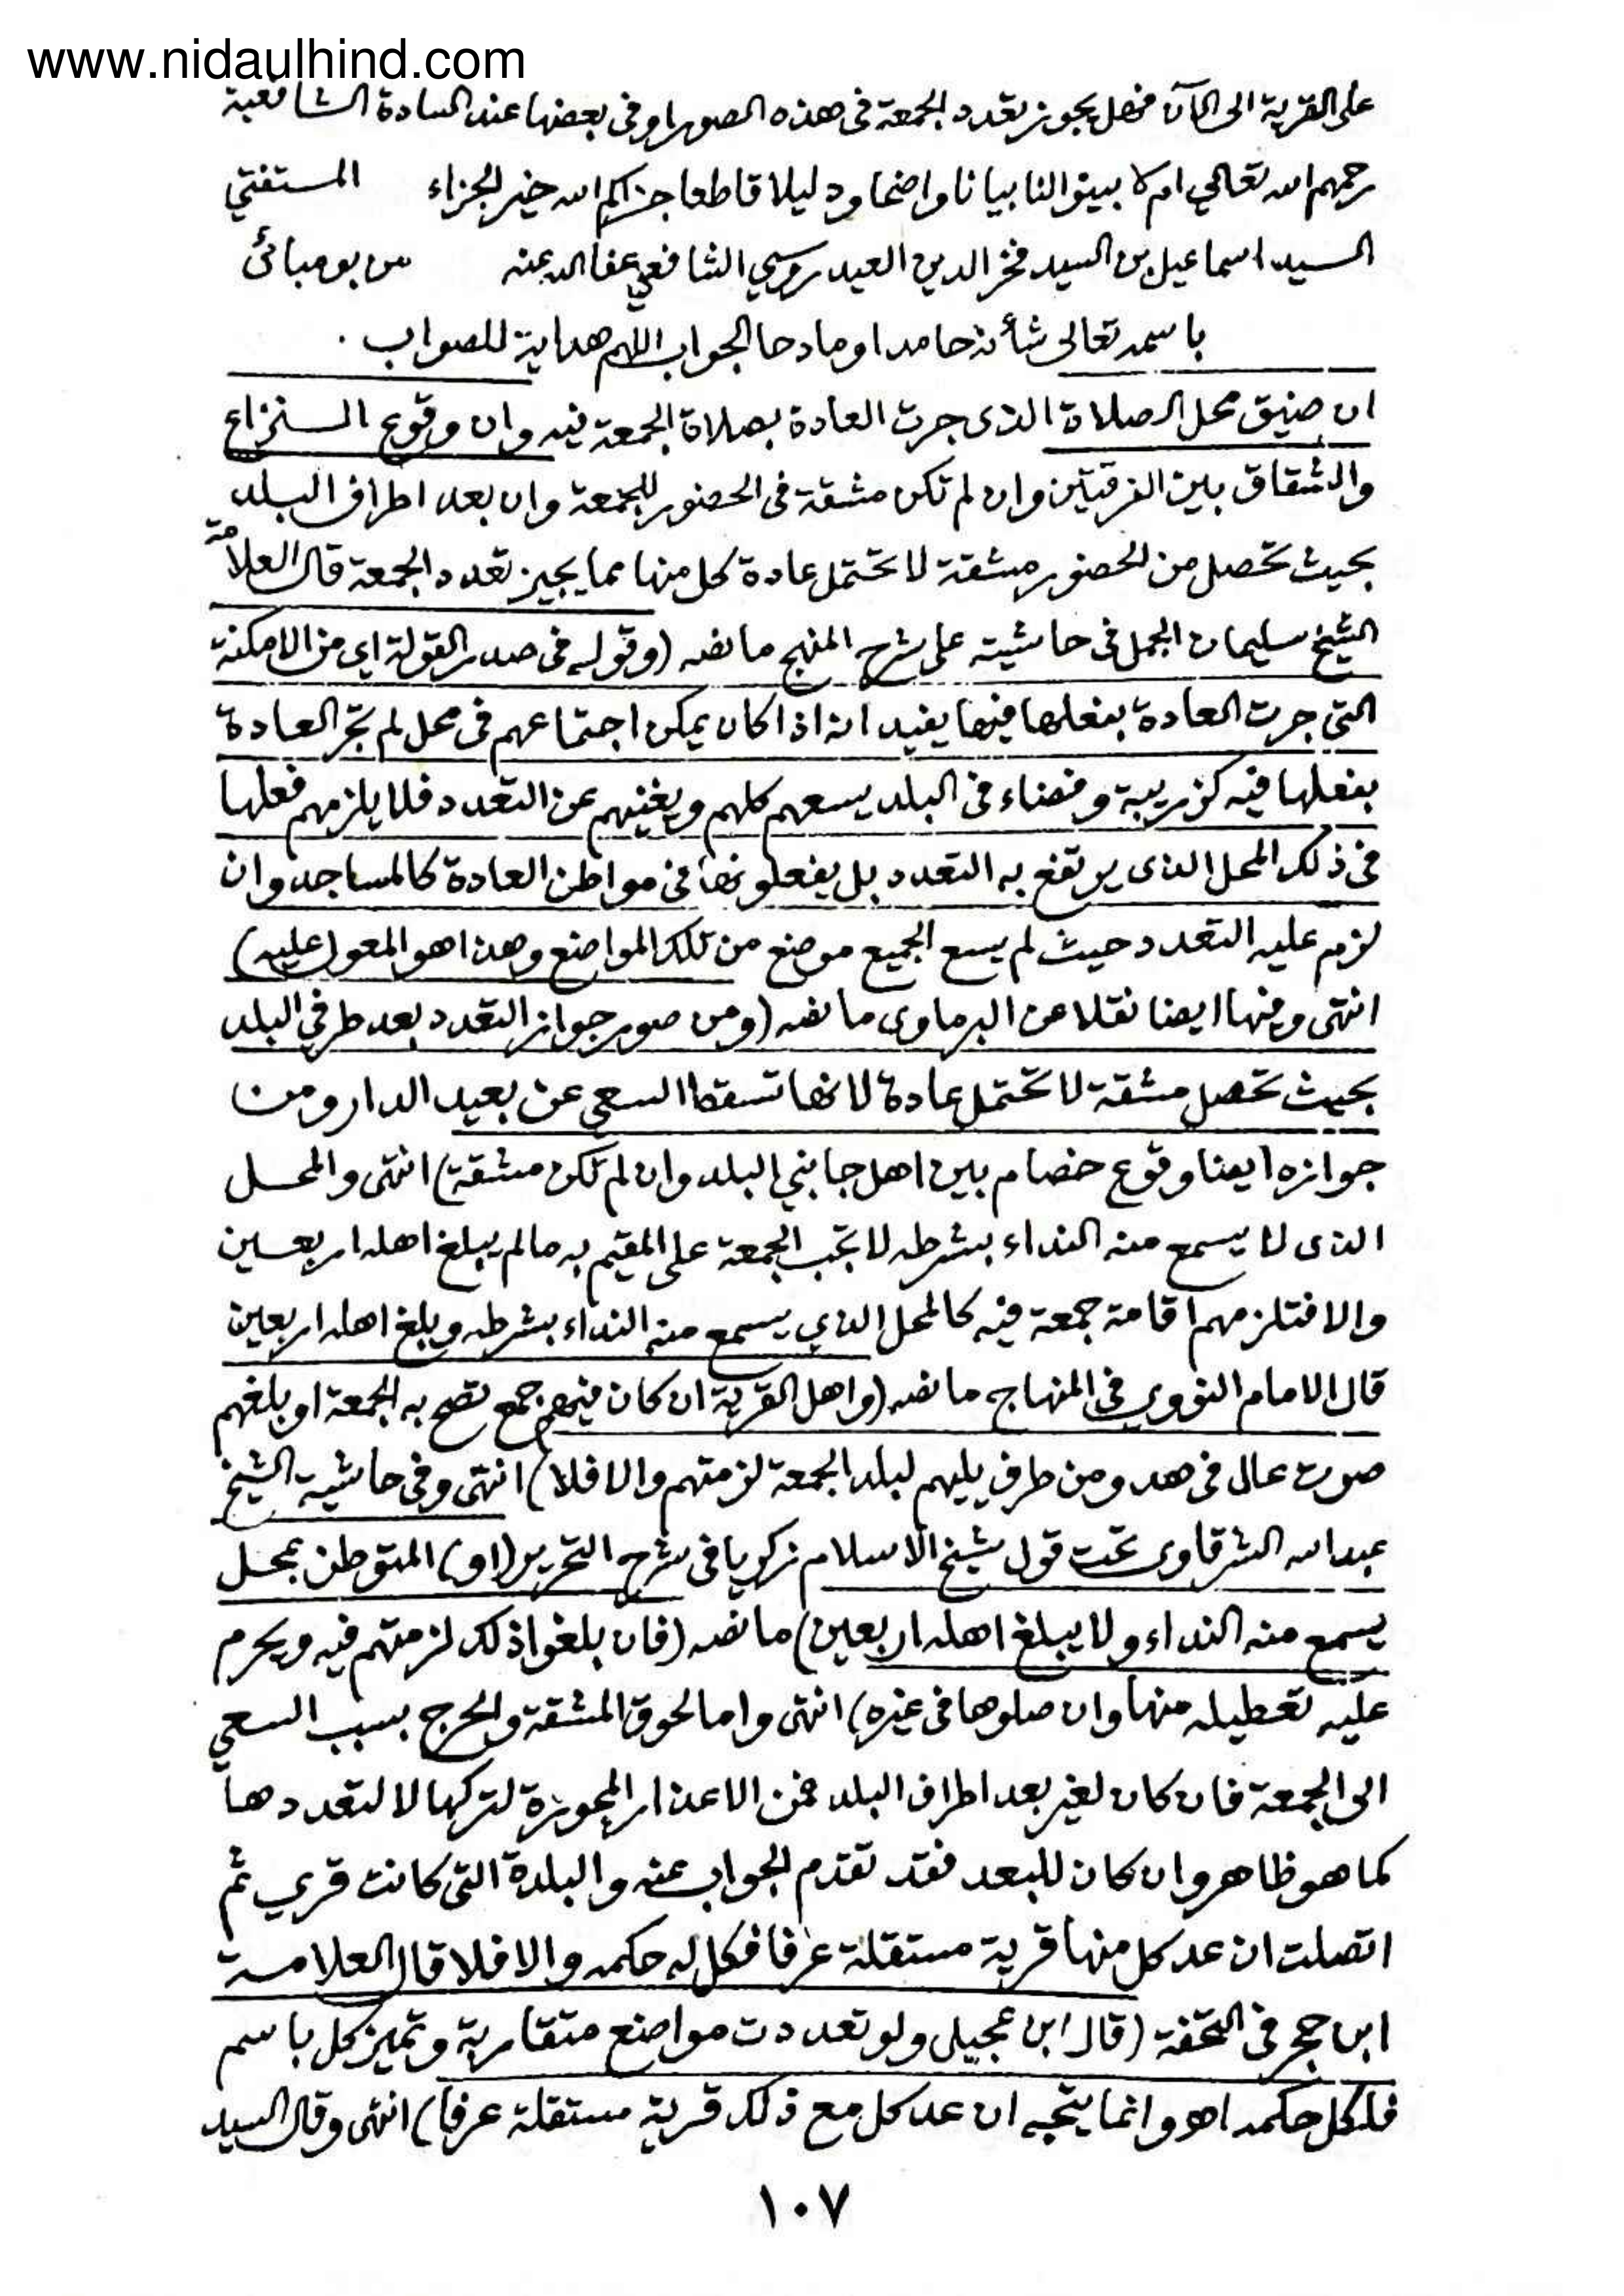 www.nidaulhind.com
على القرية الى الآن فهل يجوز تعدد الجمعة في هذه الصور او في بعضها عند السادة الشافعية
رحمهم الله تعالى ام لا بينوا لنا بيانا واضحا ودليلا قاطعا جزاكم الله خير الجزاء المستفتي
السيد اسماعيل بن السيد فخر الدين العيدروسي الشافعي عفا الله عنه من بومبائى
باسمه تعالى شأنه حامدا ومادحا الجواب اللهم هداية للصواب .
ان ضيق محل الصلاة الذى جرت العادة بصلاة الجمعة فيه وان وقوع النزاع
والشقاق بين الفرقتين وان لم تكن مشقة فى الحضور للجمعة وان بعد اطراف البلد
بحيث تحصل من الحضور مشقة لا تحتمل عادة كل منها مما يجيز تعدد الجمعة قال العلامة
الشيخ سليمان الجمل فى حاشيته على شرح المنهج ما نصه (وقوله فى صدر القولة اى من الامكنة
التى جرت العادة بفعلها فيها يفيد انه اذا كان يمكن اجتماعهم فى محل لم تجر العادة
بفعلها فيه كزريبة وفضاء فى البلد يسعهم كلهم ويغنيهم عن التعدد فلا يلزمهم فعلها
فى ذلك المحل الذى يرتفع به التعدد بل يفعلونها فى مواطن العادة كالمساجد وان
لزم عليه التعدد حيث لم يسع الجميع موضع من تلك المواضع وهذا هو المعول عليه)
انتهى وفيها ايضا نقلا عن البرماوى ما نصه (ومن صور جواز التعدد بعد طرفي البلد
بحيث تحصل مشقة لا تحتمل عادة لانها تسقط السعي عن بعيد الدار ومن
جوازه ايضا وقوع خصام بين اهل جانبي البلد وان لم تكن مشقة) انتهى والمحل
الذى لا يسمع منه النداء بشرطه لا تجب الجمعة على المقيم به مالم يبلغ اهله اربعين
والا فتلزمهم اقامة جمعة فيه كالمحل الذي يسمع منه النداء بشرطه وبلغ اهله اربعين
قال الامام النووي في المنهاج ما نصه (واهل القرية ان كان فيهم جمع تصح به الجمعة او بلغهم
صوت عال فى هدو من طرف يليهم لبلد الجمعة لزمتهم والا فلا) انتهى وفى حاشية الشيخ
عبد الله الشرقاوى تحت قول شيخ الاسلام زكريا فى شرح التحرير (او) المتوطن بمحل
يسمع منه النداء ولا يبلغ اهله اربعين) ما نصه (فان بلغوا ذلك لزمتهم فيه ويحرم
عليه تعطيله منها وان صلوها فى غيره) انتهى واما لحوق المشقة والحرج بسبب السعي
الى الجمعة فان كان لغير بعد اطراف البلد فمن الاعذار المجوزة لتركها لا لتعددها
كما هو ظاهر وان كان للبعد فقد تقدم الجواب عنه والبلدة التى كانت قري ثم
اتصلت ان عد كل منها قرية مستقلة عرفا فكل له حكمه والا فلا قال العلامة
ابن حجر فى التحفة (قال ابن عجيل ولو تعددت مواضع متقاربة وتميز كل باسم
فلكل حكمه اهـ وانما يتجه ان عد كل مع ذلك قرية مستقلة عرفا) انتهى وقال السيد
١٠٧